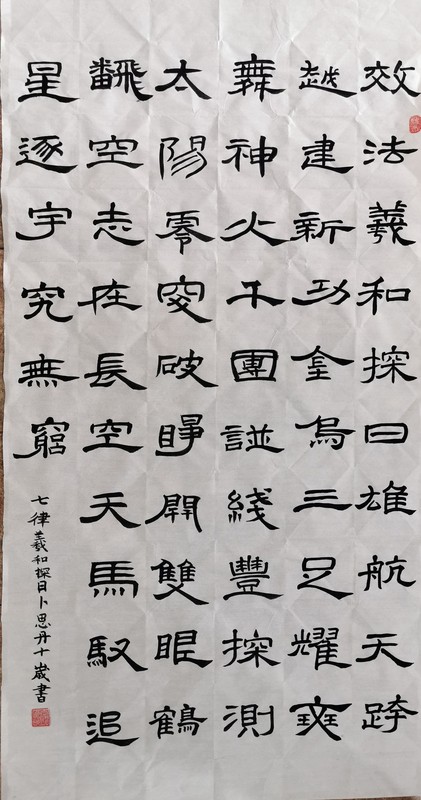 效法羲和探日雄航天跨
越建新功金烏三足耀斑
舞神火千團譜綫豐探測
太陽零突破睜開雙眼鶴
飜空志在長空天馬馭追
星逐宇究無窮
七律羲和探日卜思丹十歲書